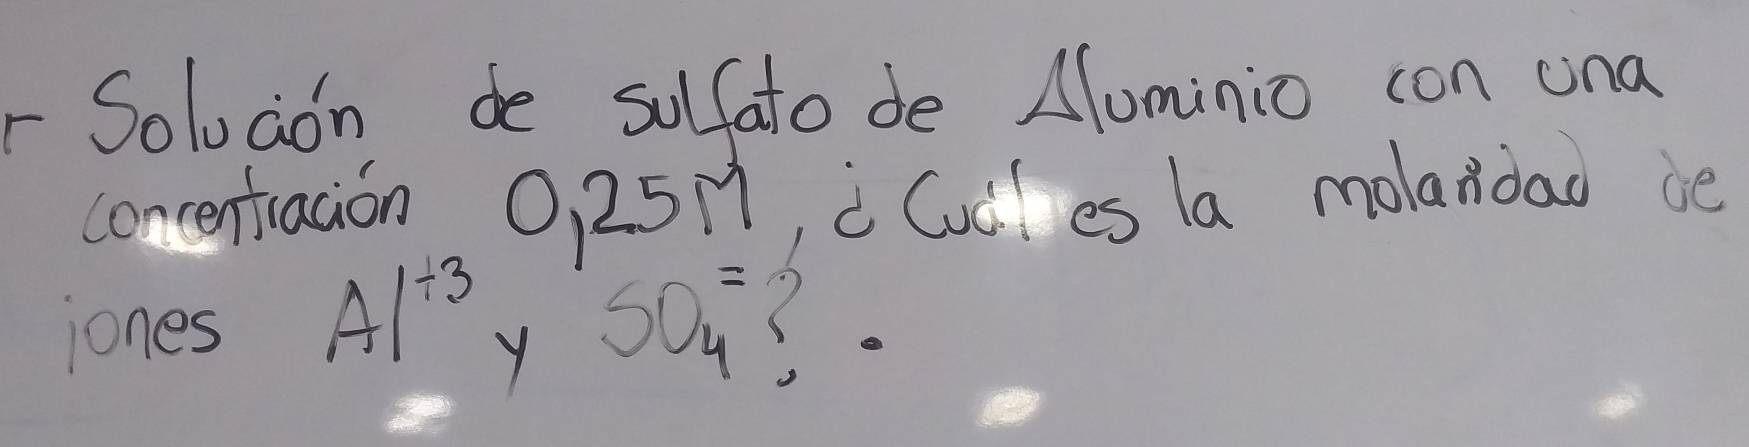 - Solución de sulfato de Aluminio con una
concentración 0,25M, ¿Cuál es la molaridad de
iones Al⁺³ y SO₄⁼?.